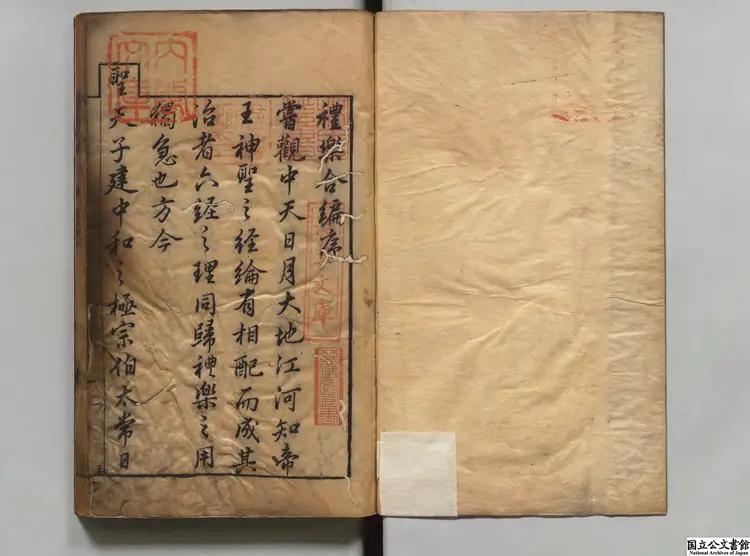 禮樂合編序
嘗觀中天日月大地江河知帝
王神聖之經綸有相配而成其
治者六經之理同歸禮樂之用
獨急也方今
聖天子建中和之極宗伯太常日
国立公文書館
National Archives of Japan